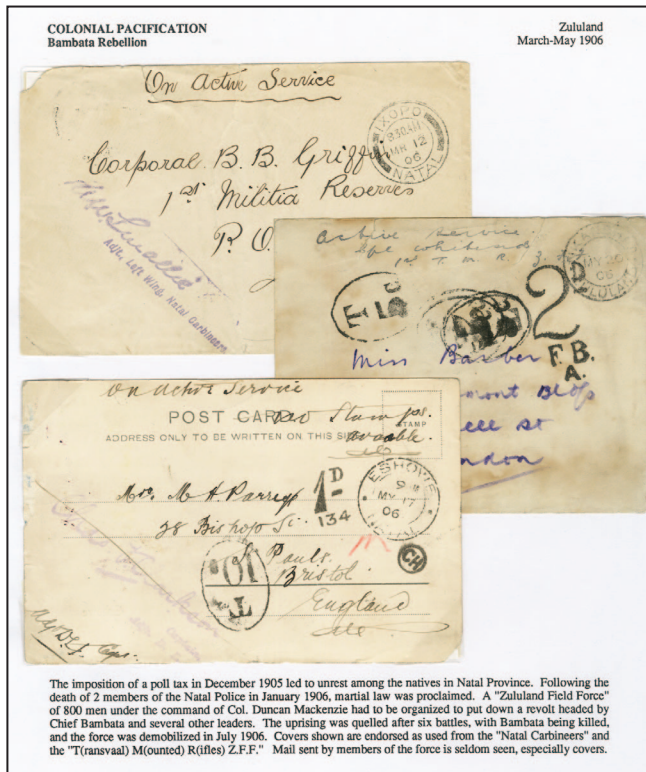 COLONIAL PACIFICATION
Bambata Rebellion
Zululand
March-May 1906
On Active Service
IXOPO
8 30 AM
MR 12
06
NATAL
Corporal B. B. Griffin
1st Militia Reserves
P. O.
Adjt., Left Wing, Natal Carbineers
Active Service
1st T. M. R.
MY
06
T
2D
F. B.
A.
Miss Barber
mont
ell St
London
On Active Service
POST CARD
No Stamps
STAMP
ADDRESS ONLY TO BE WRITTEN ON THIS SI
available.
1D
134
ESHOWE
MY 17
06
NATAL
28 Bishop St.
St Pauls
CH
10
T
Bristol
England
The imposition of a poll tax in December 1905 led to unrest among the natives in Natal Province. Following the
death of 2 members of the Natal Police in January 1906, martial law was proclaimed. A "Zululand Field Force"
of 800 men under the command of Col. Duncan Mackenzie had to be organized to put down a revolt headed by
Chief Bambata and several other leaders. The uprising was quelled after six battles, with Bambata being killed,
and the force was demobilized in July 1906. Covers shown are endorsed as used from the "Natal Carbineers" and
the "T(ransvaal) M(ounted) R(ifles) Z.F.F." Mail sent by members of the force is seldom seen, especially covers.